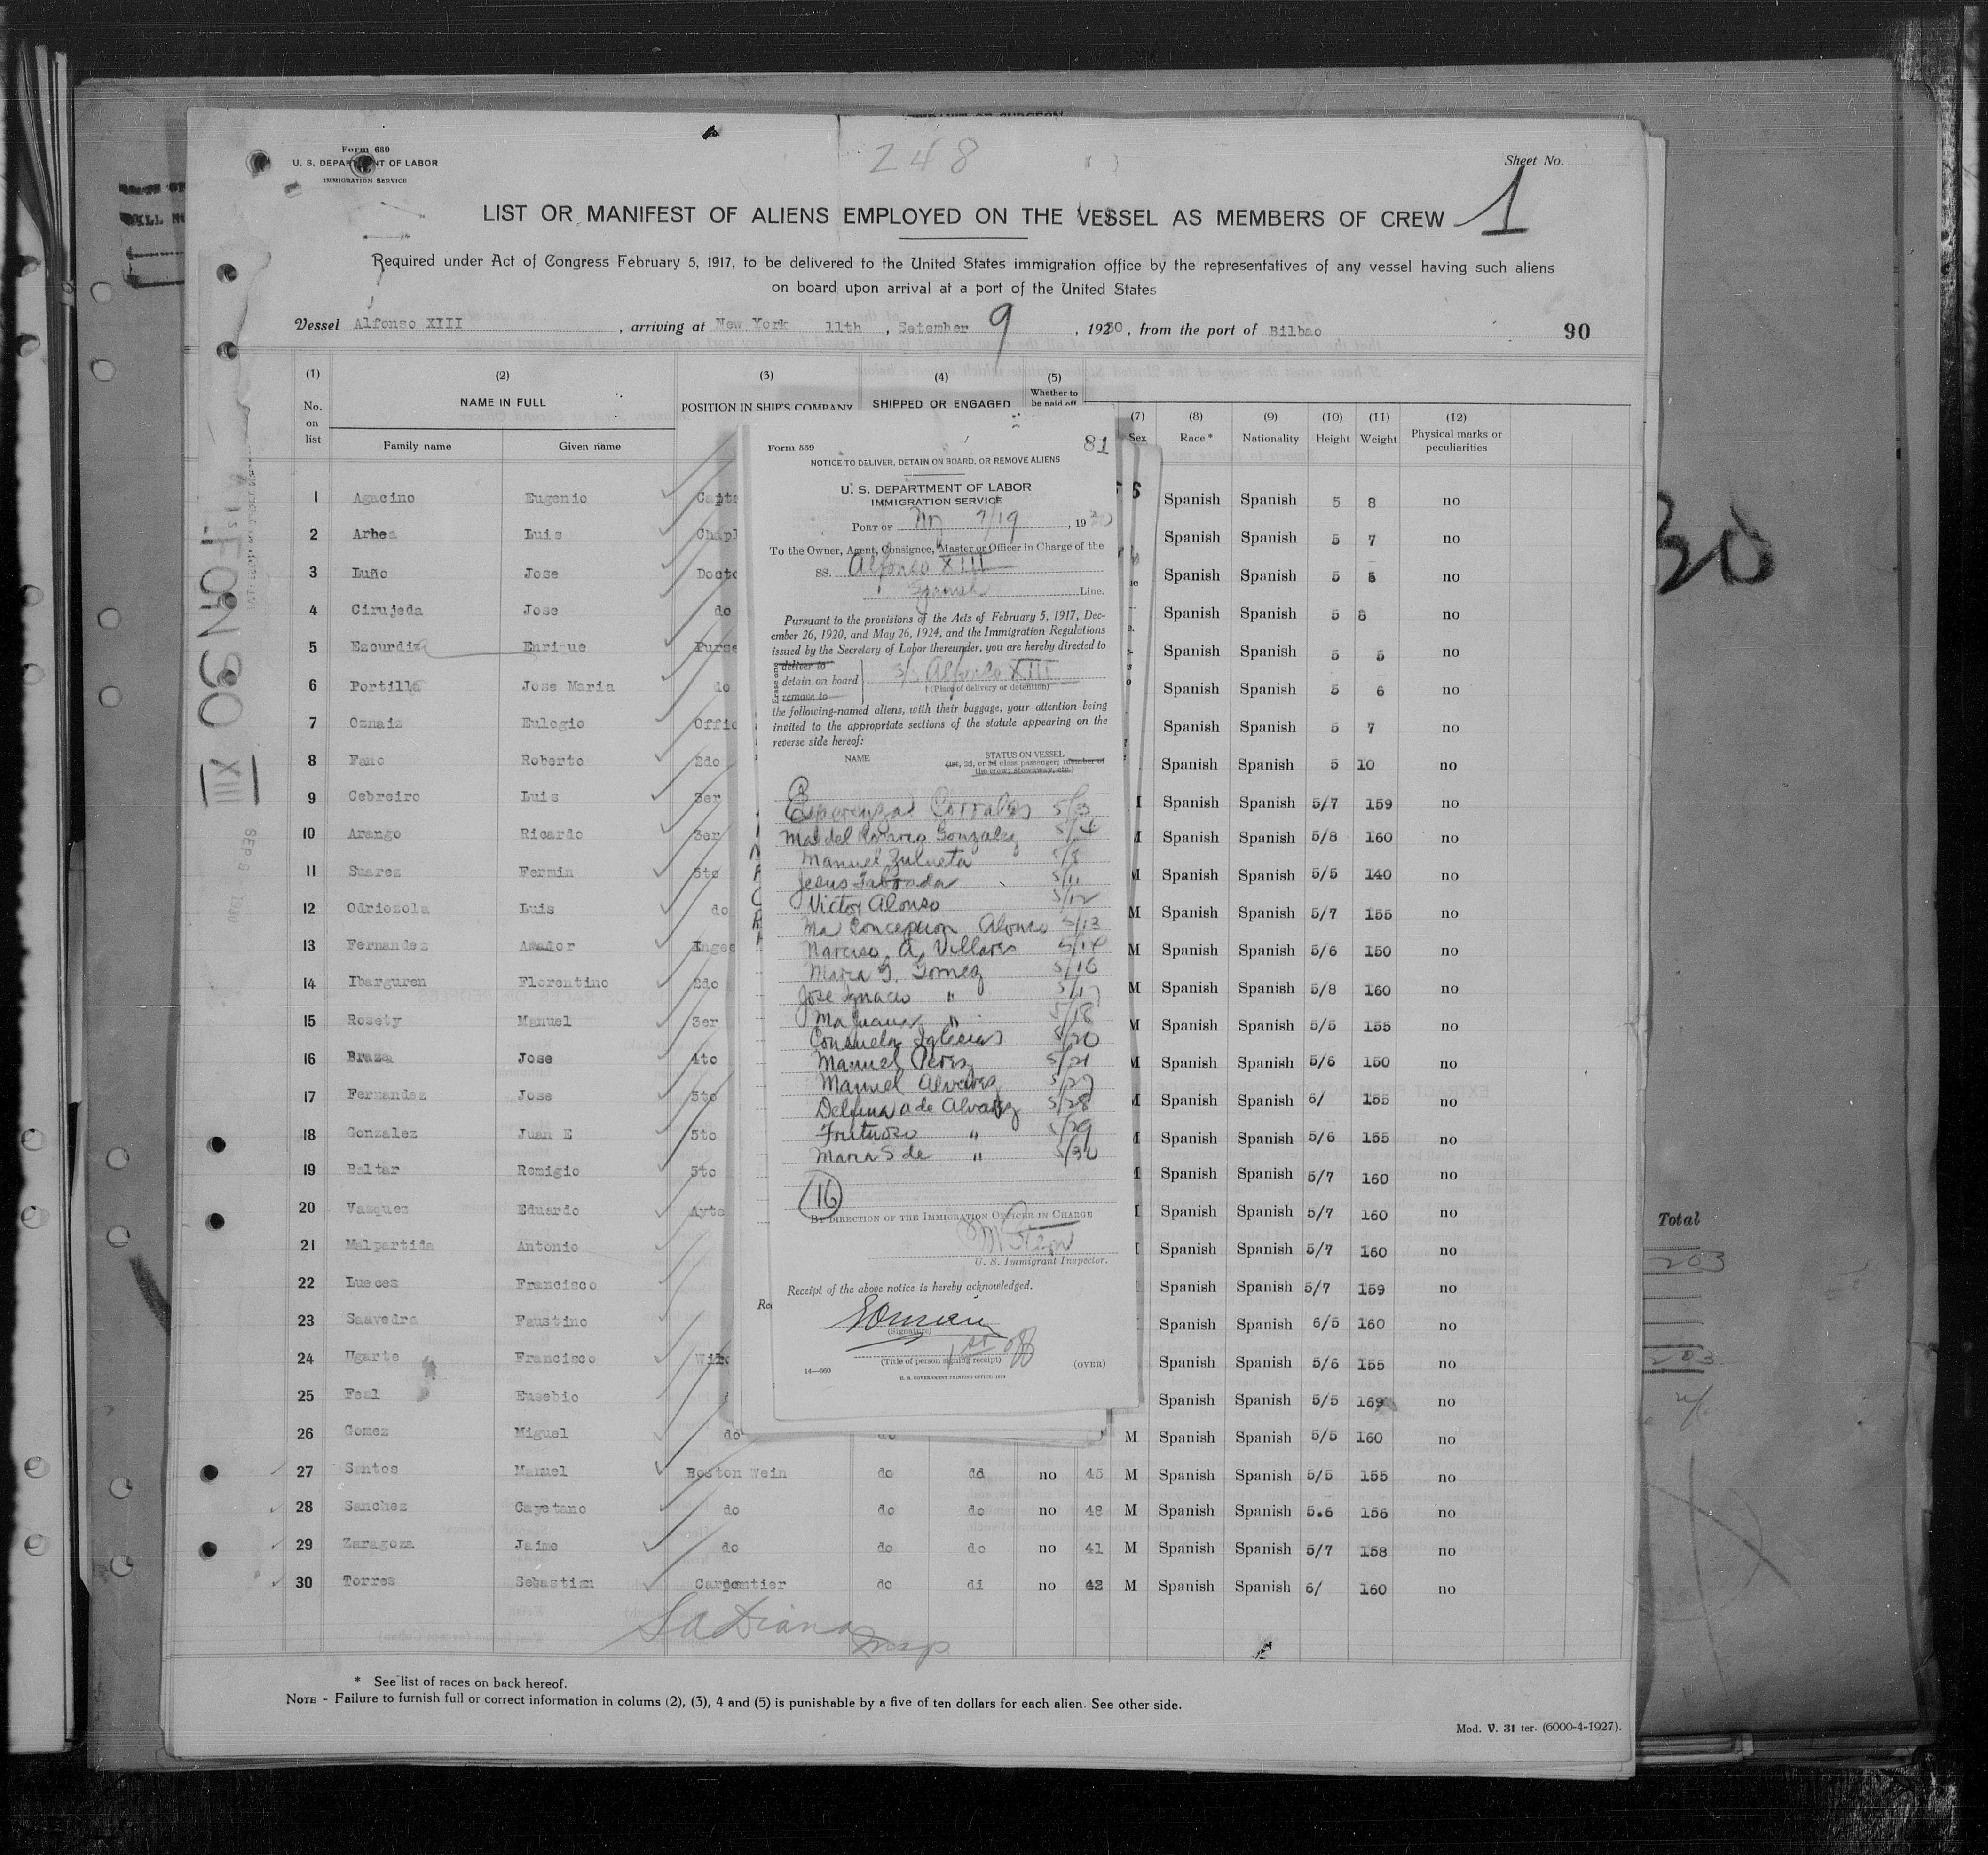 Form 680
U. S. DEPARTMENT OF LABOR
IMMIGRATION SERVICE
248
Sheet No. 1
LIST OR MANIFEST OF ALIENS EMPLOYED ON THE VESSEL AS MEMBERS OF CREW
Required under Act of Congress February 5, 1917, to be delivered to the United States immigration office by the representatives of any vessel having such aliens
on board upon arrival at a port of the United States
Vessel Alfonso XIII , arriving at New York 11th , Setember 9 , 1930 , from the port of Bilbao 90
(1) (2) (3) (4) (5) (7) (8) (9) (10) (11) (12)
No. on list NAME IN FULL POSITION IN SHIP'S COMPANY SHIPPED OR ENGAGED Whether to be paid off Sex Race* Nationality Height Weight Physical marks or peculiarities
Family name Given name
1 Agacino Eugenio Spanish Spanish 5 8 no
2 Arhea Luis Chapl Spanish Spanish 5 7 no
3 Luño Jose Docto Spanish Spanish 5 5 no
4 Cirujeda Jose do Spanish Spanish 5 8 no
5 Escurdiz Enrique Purse Spanish Spanish 5 5 no
6 Portilla Jose Maria do Spanish Spanish 5 6 no
7 Oznaiz Eulogio Offic Spanish Spanish 5 7 no
8 Fano Roberto 2do Spanish Spanish 5 10 no
9 Cebreiro Luis 3er Spanish Spanish 5/7 159 no
10 Arango Ricardo 3er M Spanish Spanish 5/8 160 no
11 Suarez Fermin 5to M Spanish Spanish 5/5 140 no
12 Odriozola Luis do M Spanish Spanish 5/7 155 no
13 Fernandez Amador M Spanish Spanish 5/6 150 no
14 Ibarguren Florentino 2do M Spanish Spanish 5/8 160 no
15 Rosety Manuel 3er M Spanish Spanish 5/5 155 no
16 Braza Jose 4to M Spanish Spanish 5/6 150 no
17 Fernandez Jose 5to M Spanish Spanish 6/ 155 no
18 Gonzalez Juan E 5to Spanish Spanish 5/6 155 no
19 Baltar Remigio 5to Spanish Spanish 5/7 160 no
20 Vazquez Eduardo Ayte Spanish Spanish 5/7 160 no
21 Malpartida Antonio Spanish Spanish 5/7 160 no
22 Lueces Francisco Spanish Spanish 5/7 159 no
23 Saavedra Faustino Spanish Spanish 6/5 160 no
24 Ugarte Francisco Spanish Spanish 5/6 155 no
25 Feal Eusebio Spanish Spanish 5/5 169 no
26 Gomez Miguel do do M Spanish Spanish 5/5 160 no
27 Santos Manuel Boston Wein do dd no 45 M Spanish Spanish 5/5 155 no
28 Sanchez Cayetano do do do no 48 M Spanish Spanish 5.6 156 no
29 Zaragoza Jaime do do do no 41 M Spanish Spanish 5/7 158 no
30 Torres Sebastian do di no 42 M Spanish Spanish 6/ 160 no
* See list of races on back hereof.
NOTE - Failure to furnish full or correct information in colums (2), (3), 4 and (5) is punishable by a five of ten dollars for each alien. See other side.
Mod. V. 31 ter. (6000-4-1927).
Form 559
81
NOTICE TO DELIVER, DETAIN ON BOARD, OR REMOVE ALIENS
U. S. DEPARTMENT OF LABOR
IMMIGRATION SERVICE
PORT OF NY 9/19 , 1930
To the Owner, Agent, Consignee, Master or Officer in Charge of the
SS. Alfonso XIII
Spanish Line.
Pursuant to the provisions of the Acts of February 5, 1917, Dec-
ember 26, 1920, and May 26, 1924, and the Immigration Regulations
issued by the Secretary of Labor thereunder, you are hereby directed to
Erase one
deliver to
detain on board S/S Alfonso XIII
remove to
† (Place of delivery or detention)
the following-named aliens, with their baggage, your attention being
invited to the appropriate sections of the statute appearing on the
reverse side hereof:
NAME
STATUS ON VESSEL
(1st, 2d, or 3d class passenger; member of
the crew; stowaway, etc.)
Esperenza Corrales 5/3
Ma del Rosario Gonzalez 5/4
Manuel Zulueta 5/8
Jesus Taboada 5/11
Victor Alonso 5/12
Ma Concepcion Alonso 5/13
Narciso A. Villares 5/14
Maria G. Gomez 5/16
Jose Ignacio " 5/17
Ma Juana " 5/18
Consuela Iglesias 5/20
Manuel Perez 5/21
Manuel Alvarez 5/27
Delfina A de Alvarez 5/28
Frutuoso " 5/29
Maria S de " 5/30
16
BY DIRECTION OF THE IMMIGRATION OFFICER IN CHARGE
U. S. Immigrant Inspector.
Receipt of the above notice is hereby acknowledged.
(Signature)
1st off
(Title of person signing receipt)
(OVER)
14—660
U. S. GOVERNMENT PRINTING OFFICE: 1929
ALFONSO XIII
SEP 9 1930
30
Total
203
203